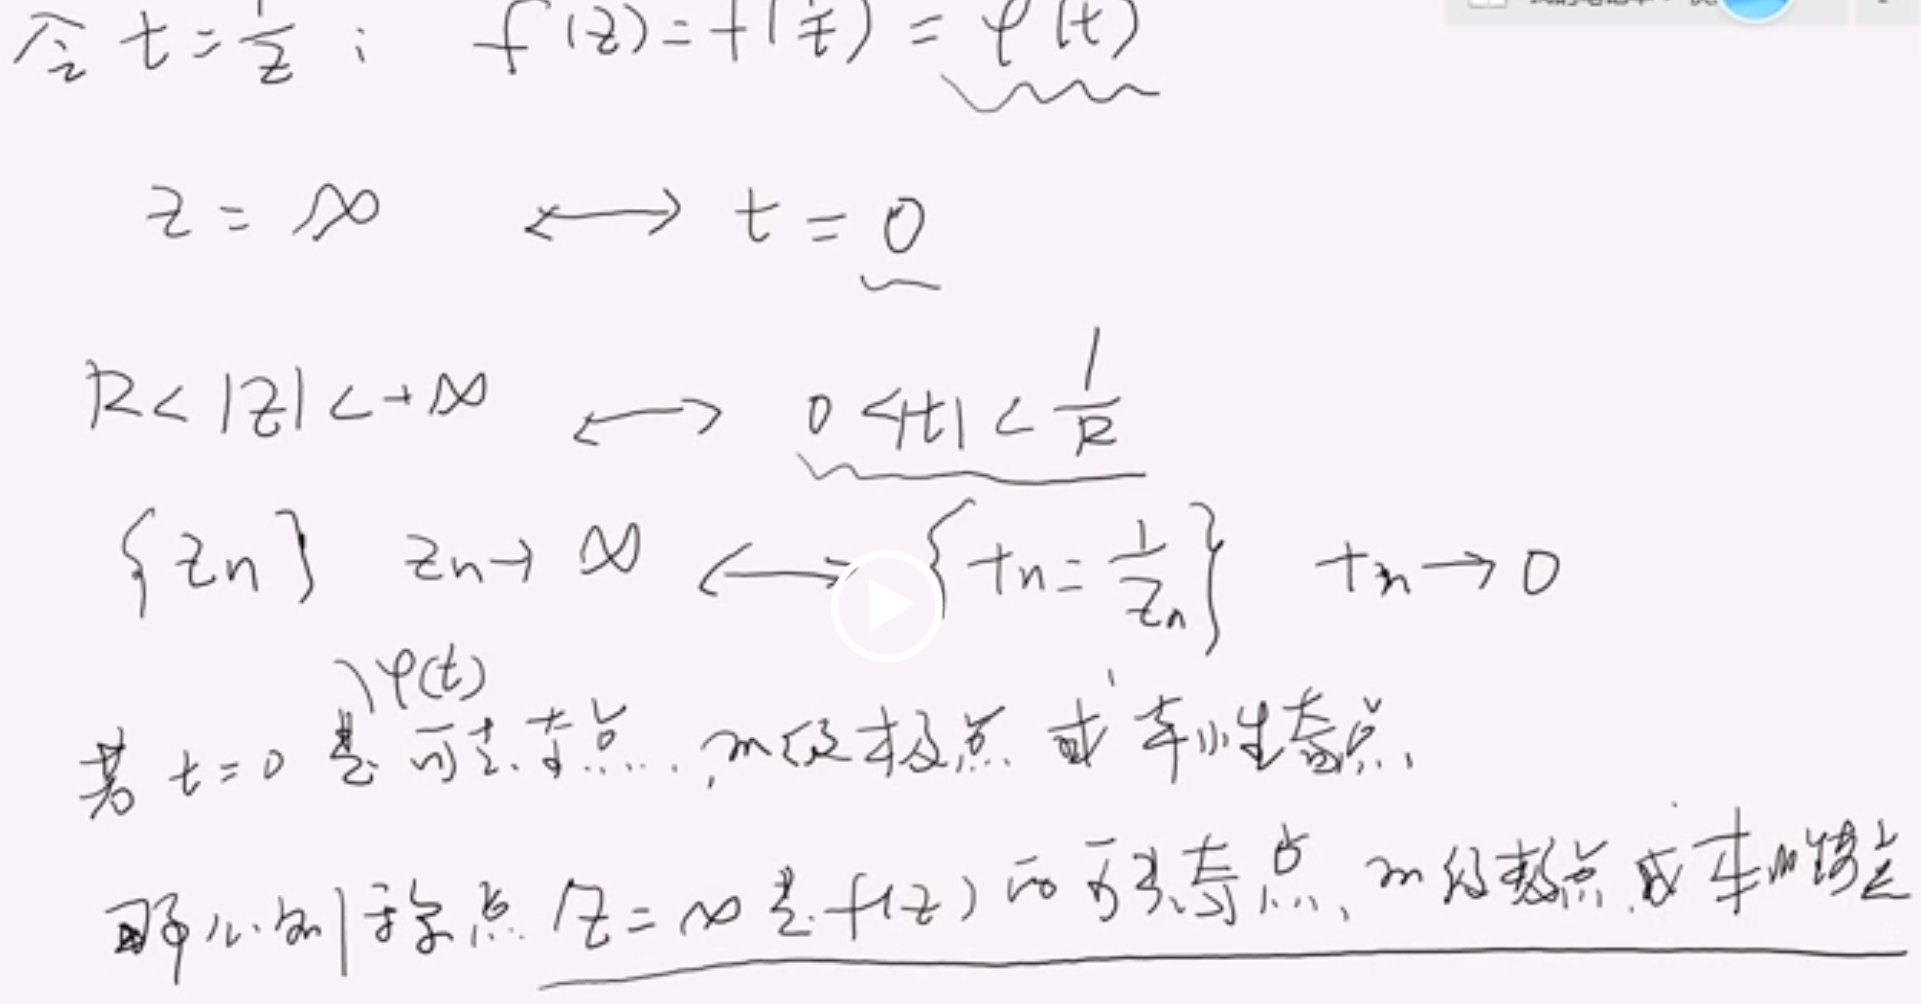 令 t=1/z； f(z)=f(1/t)=φ(t)
z=∞ ⟷ t=0
R<|z|<+∞ ⟷ 0<|t|<1/R
{zn} zn→∞ ⟷ {tn=1/zn} tn→0
φ(t)
若 t=0 是可去奇点、m级极点或本性奇点
那么则称点 z=∞是f(z)的可去奇点、m级极点或本性奇点